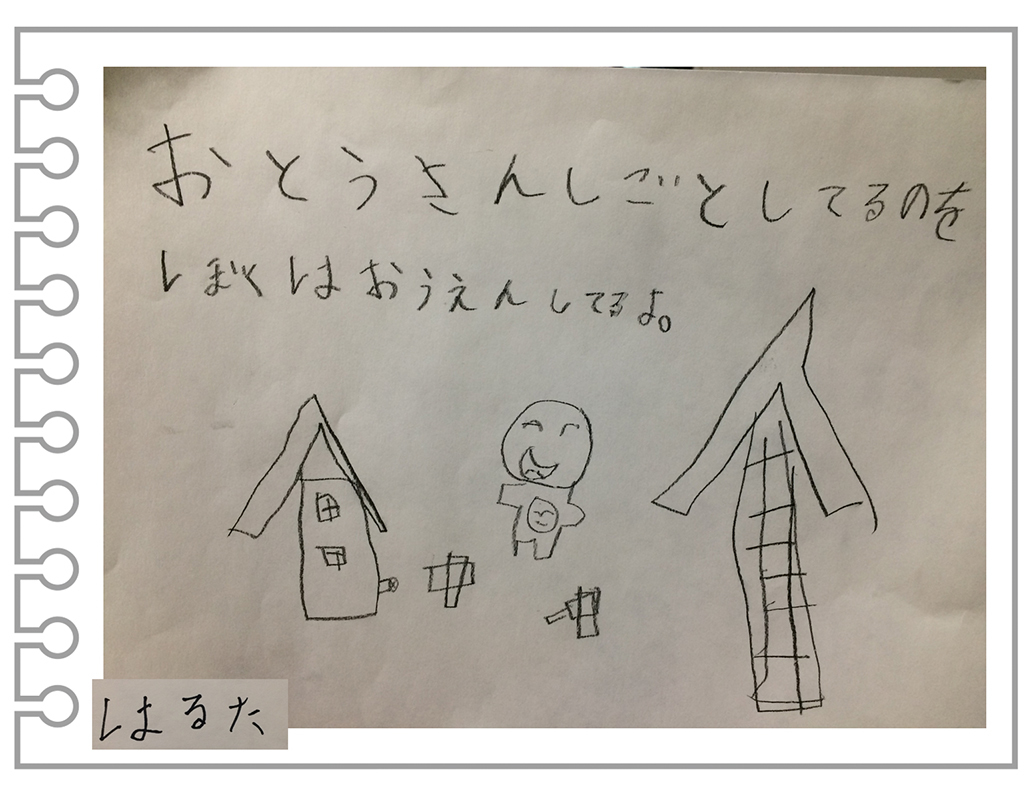 おとうさんしごとしてるのを
ぼくはおうえんしてるよ。
はるた